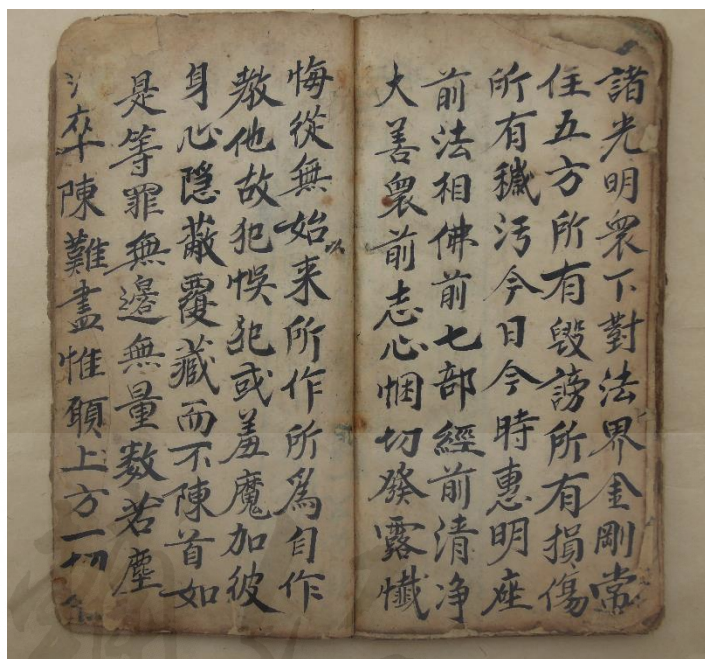 諸光明衆下對法界金剛常
住五方所有毀謗所有損傷
所有穢污今日今時惠明座
前法相佛前七部經前清净
大善衆前志心悃切發露懴
悔從無始以来所作所為自作
教他故犯悞犯或羞魔加彼
身心隱蔽覆蔵而不陳首如
是等罪無邊無量数若塵
沙卒陳難盡惟願上方一切